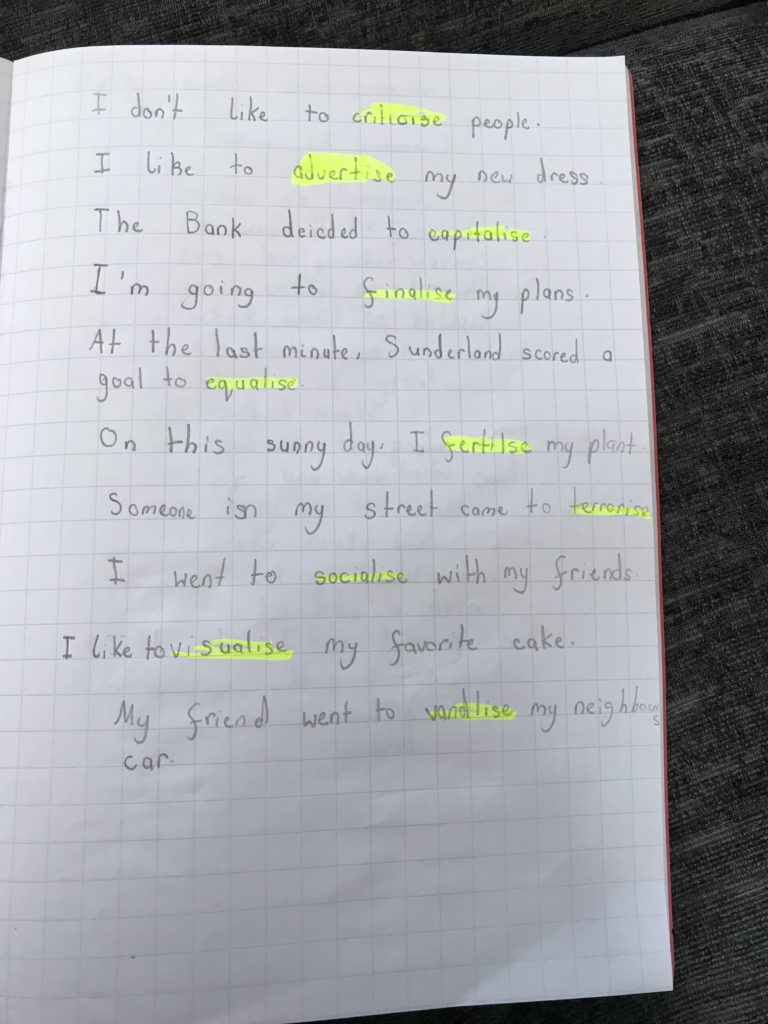 I don't like to criticise people.
I like to advertise my new dress
The Bank deicded to capitalise.
I'm going to finalise my plans.
At the last minute, Sunderland scored a
goal to equalise.
On this sunny day. I fertilse my plant.
Someone isn my street came to terrorise
I went to socialise with my friends.
I like to visualise my favorite cake.
My friend went to vandlise my neighbours
car.